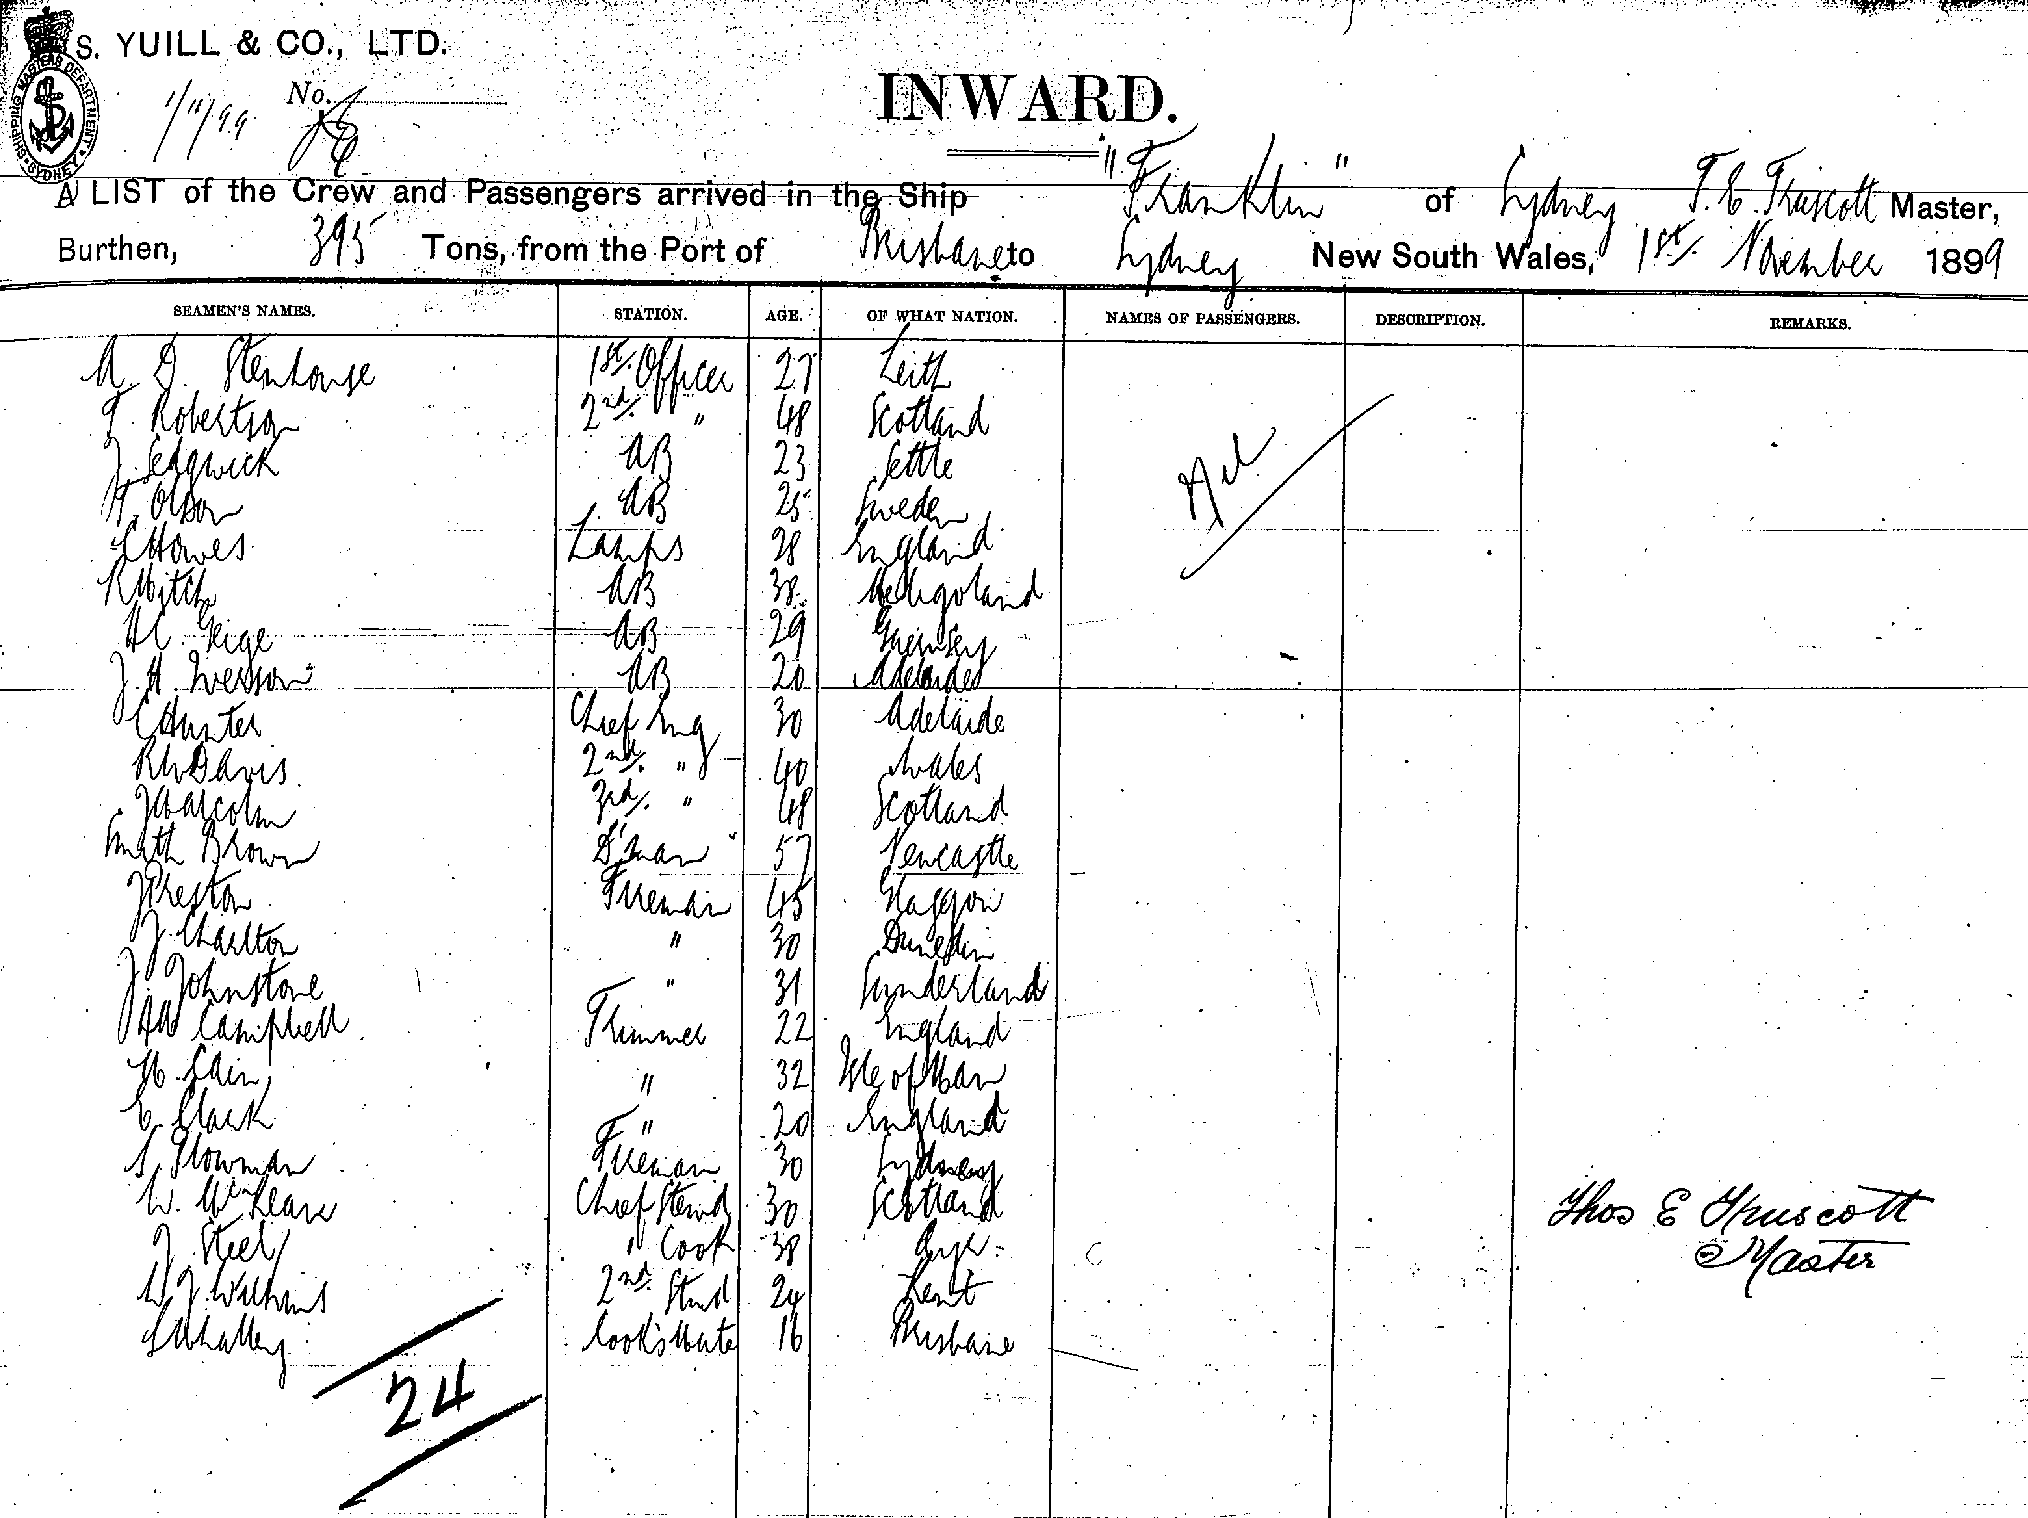 S. YUILL & CO., LTD.
1/11/99 No.
SHIPPING MASTERS DEPARTMENT SYDNEY
INWARD.
A LIST of the Crew and Passengers arrived in the Ship "Franklin" of Sydney T. E. Truscott Master,
Burthen, 395 Tons, from the Port of Brisbane to Sydney New South Wales, 1st. November 1899
SEAMEN'S NAMES. STATION. AGE. OF WHAT NATION. NAMES OF PASSENGERS. DESCRIPTION. REMARKS.
A D. Stenhouse 1st. Officer 27 Leith
T. Robertson 2nd. " 48 Scotland
J. Sedgwick AB 23 Settle
H. Olson AB 25 Sweden
C Howes Lamps 28 England
Nil
R Witch AB 38 Heligoland
H C. Geige AB 29 Guernsey
J. H. Iverson AB 20 Adelaide
C Hunter Chief Eng 30 Adelaide
R W Davis 2nd. " 40 Wales
J Malcolm 3rd. " 48 Scotland
Smith Brown D'man 57 Newcastle
J Preston Fireman 45 Glasgow
J. Charlton " 30 Dunedin
J. Johnstone " 31 Sunderland
Campbell Trimmer 22 England
Cain " 32 Isle of Man
E. Clark " 20 England
S. Plowman Fireman 30 Sydney
W. McLean Chief Stewd 30 Scotland
J. Steel " Cook 38
W J. Wilkins 2nd. Stwd 24 Kent
S Whalley Cook's Mate 16 Brisbane
Thos E Truscott
Master
24